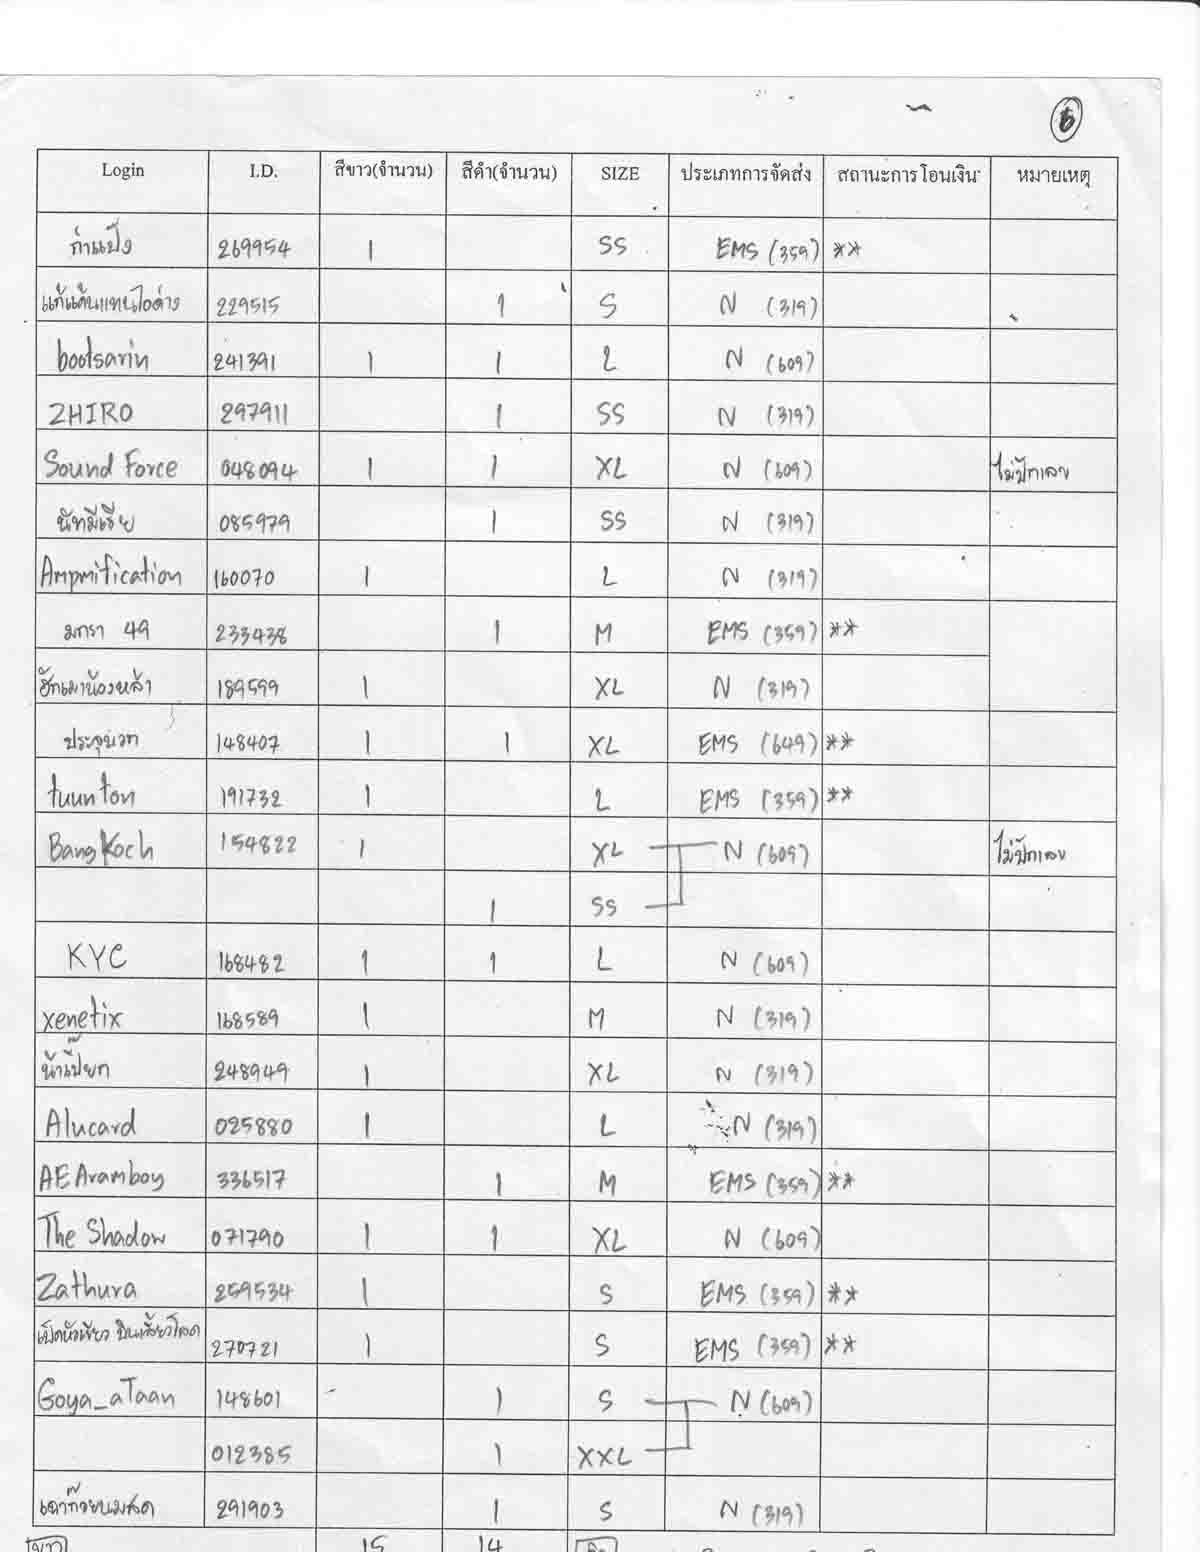 6
Login I.D. สีขาว(จำนวน) สีดำ(จำนวน) SIZE ประเภทการจัดส่ง สถานะการโอนเงิน หมายเหตุ
กำแป้ง 269954 1 SS EMS (359) **
แก้แค้นแทนไอค่าง 229515 1 S N (319)
bootsarin 241391 1 1 L N (609)
ZHIRO 297911 1 SS N (319)
Sound Force 048094 1 1 XL N (609) ไม่ปักเลข
นัทมีเรีย 085979 1 SS N (319)
Ampmification 160070 1 L N (319)
มกรา 49 233438 1 M EMS (359) **
ฮักเมาน้องหล้า 189599 1 XL N (319)
ประจุบวก 148407 1 1 XL EMS (649) **
tuunton 191732 1 L EMS (359) **
BangKoch 154822 1 XL N (609) ไม่ปักเลข
1 SS
KYC 168482 1 1 L N (609)
xenetix 168589 1 M N (319)
น้าเปี๊ยก 248949 1 XL N (319)
Alucard 025880 1 L N (319)
AEAramboy 336517 1 M EMS (359) **
The Shadow 071790 1 1 XL N (609)
Zathura 259534 1 S EMS (359) **
เป็ดหัวเขียว บินเลี้ยวโลด 270721 1 S EMS (359) **
Goya_aTaan 148601 1 S N (609)
012385 1 XXL
เฉาก๊วยนมสด 291903 1 S N (319)
15 14